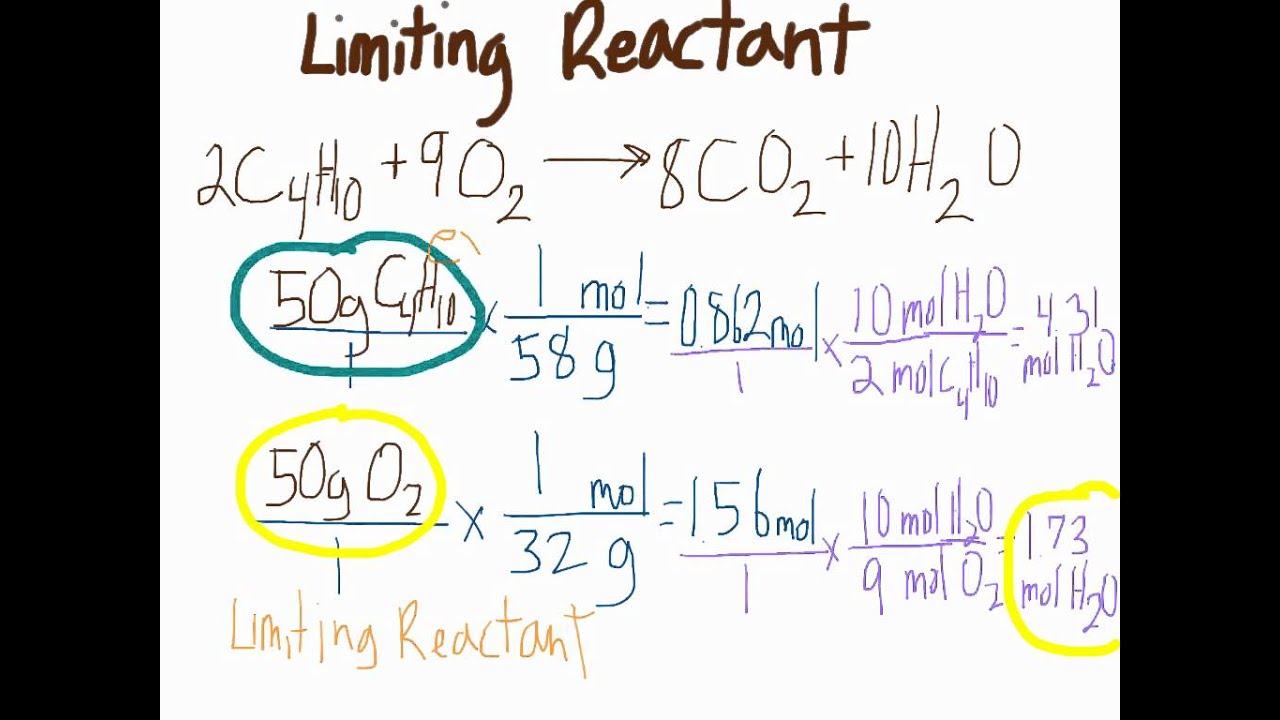 Limiting Reactant
2C₄H₁₀ + 9O₂ → 8CO₂ + 10H₂O
50g C₄H₁₀ / 1 × 1 mol / 58 g = 0.862 mol / 1 × 10 mol H₂O / 2 mol C₄H₁₀ = 4.31 mol H₂O
50g O₂ / 1 × 1 mol / 32 g = 1.56 mol / 1 × 10 mol H₂O / 9 mol O₂ = 1.73 mol H₂O
Limiting Reactant